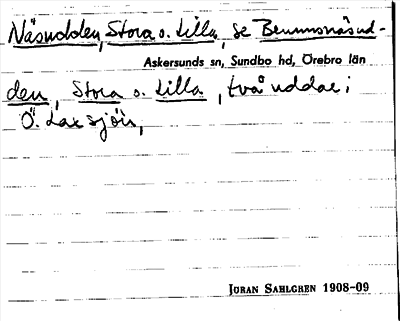 Näsudden, Stora o. Lilla, se Bernmsnäsud-
Askersunds sn, Sundbo hd, Örebro län
den, Stora o. Lilla, två uddar i
Ö. Laxsjön,
JÖRAN SAHLGREN 1908-09